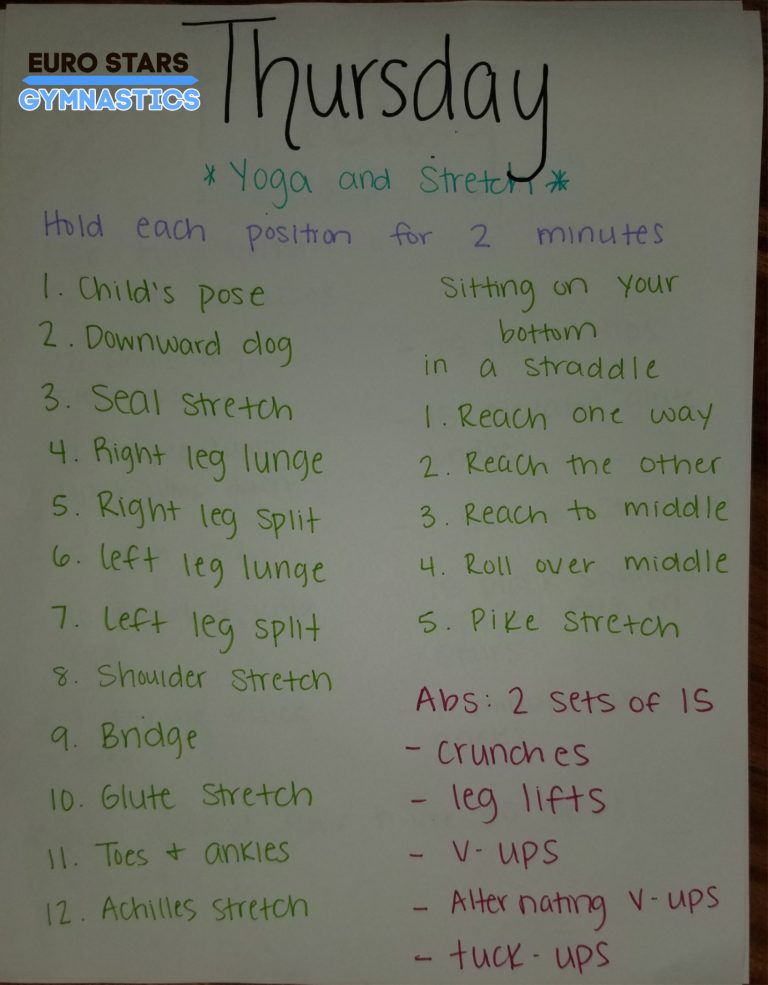 EURO STARS
GYMNASTICS
Thursday
* Yoga and Stretch *
Hold each position for 2 minutes
1. Child's pose
2. Downward dog
3. Seal stretch
4. Right leg lunge
5. Right leg split
6. left leg lunge
7. left leg split
8. Shoulder stretch
9. Bridge
10. Glute stretch
11. Toes + ankles
12. Achilles stretch
Sitting on your
bottom
in a straddle
1. Reach one way
2. Reach the other
3. Reach to middle
4. Roll over middle
5. Pike stretch
Abs: 2 sets of 15
- crunches
- leg lifts
- v-ups
- Alternating v-ups
- tuck-ups